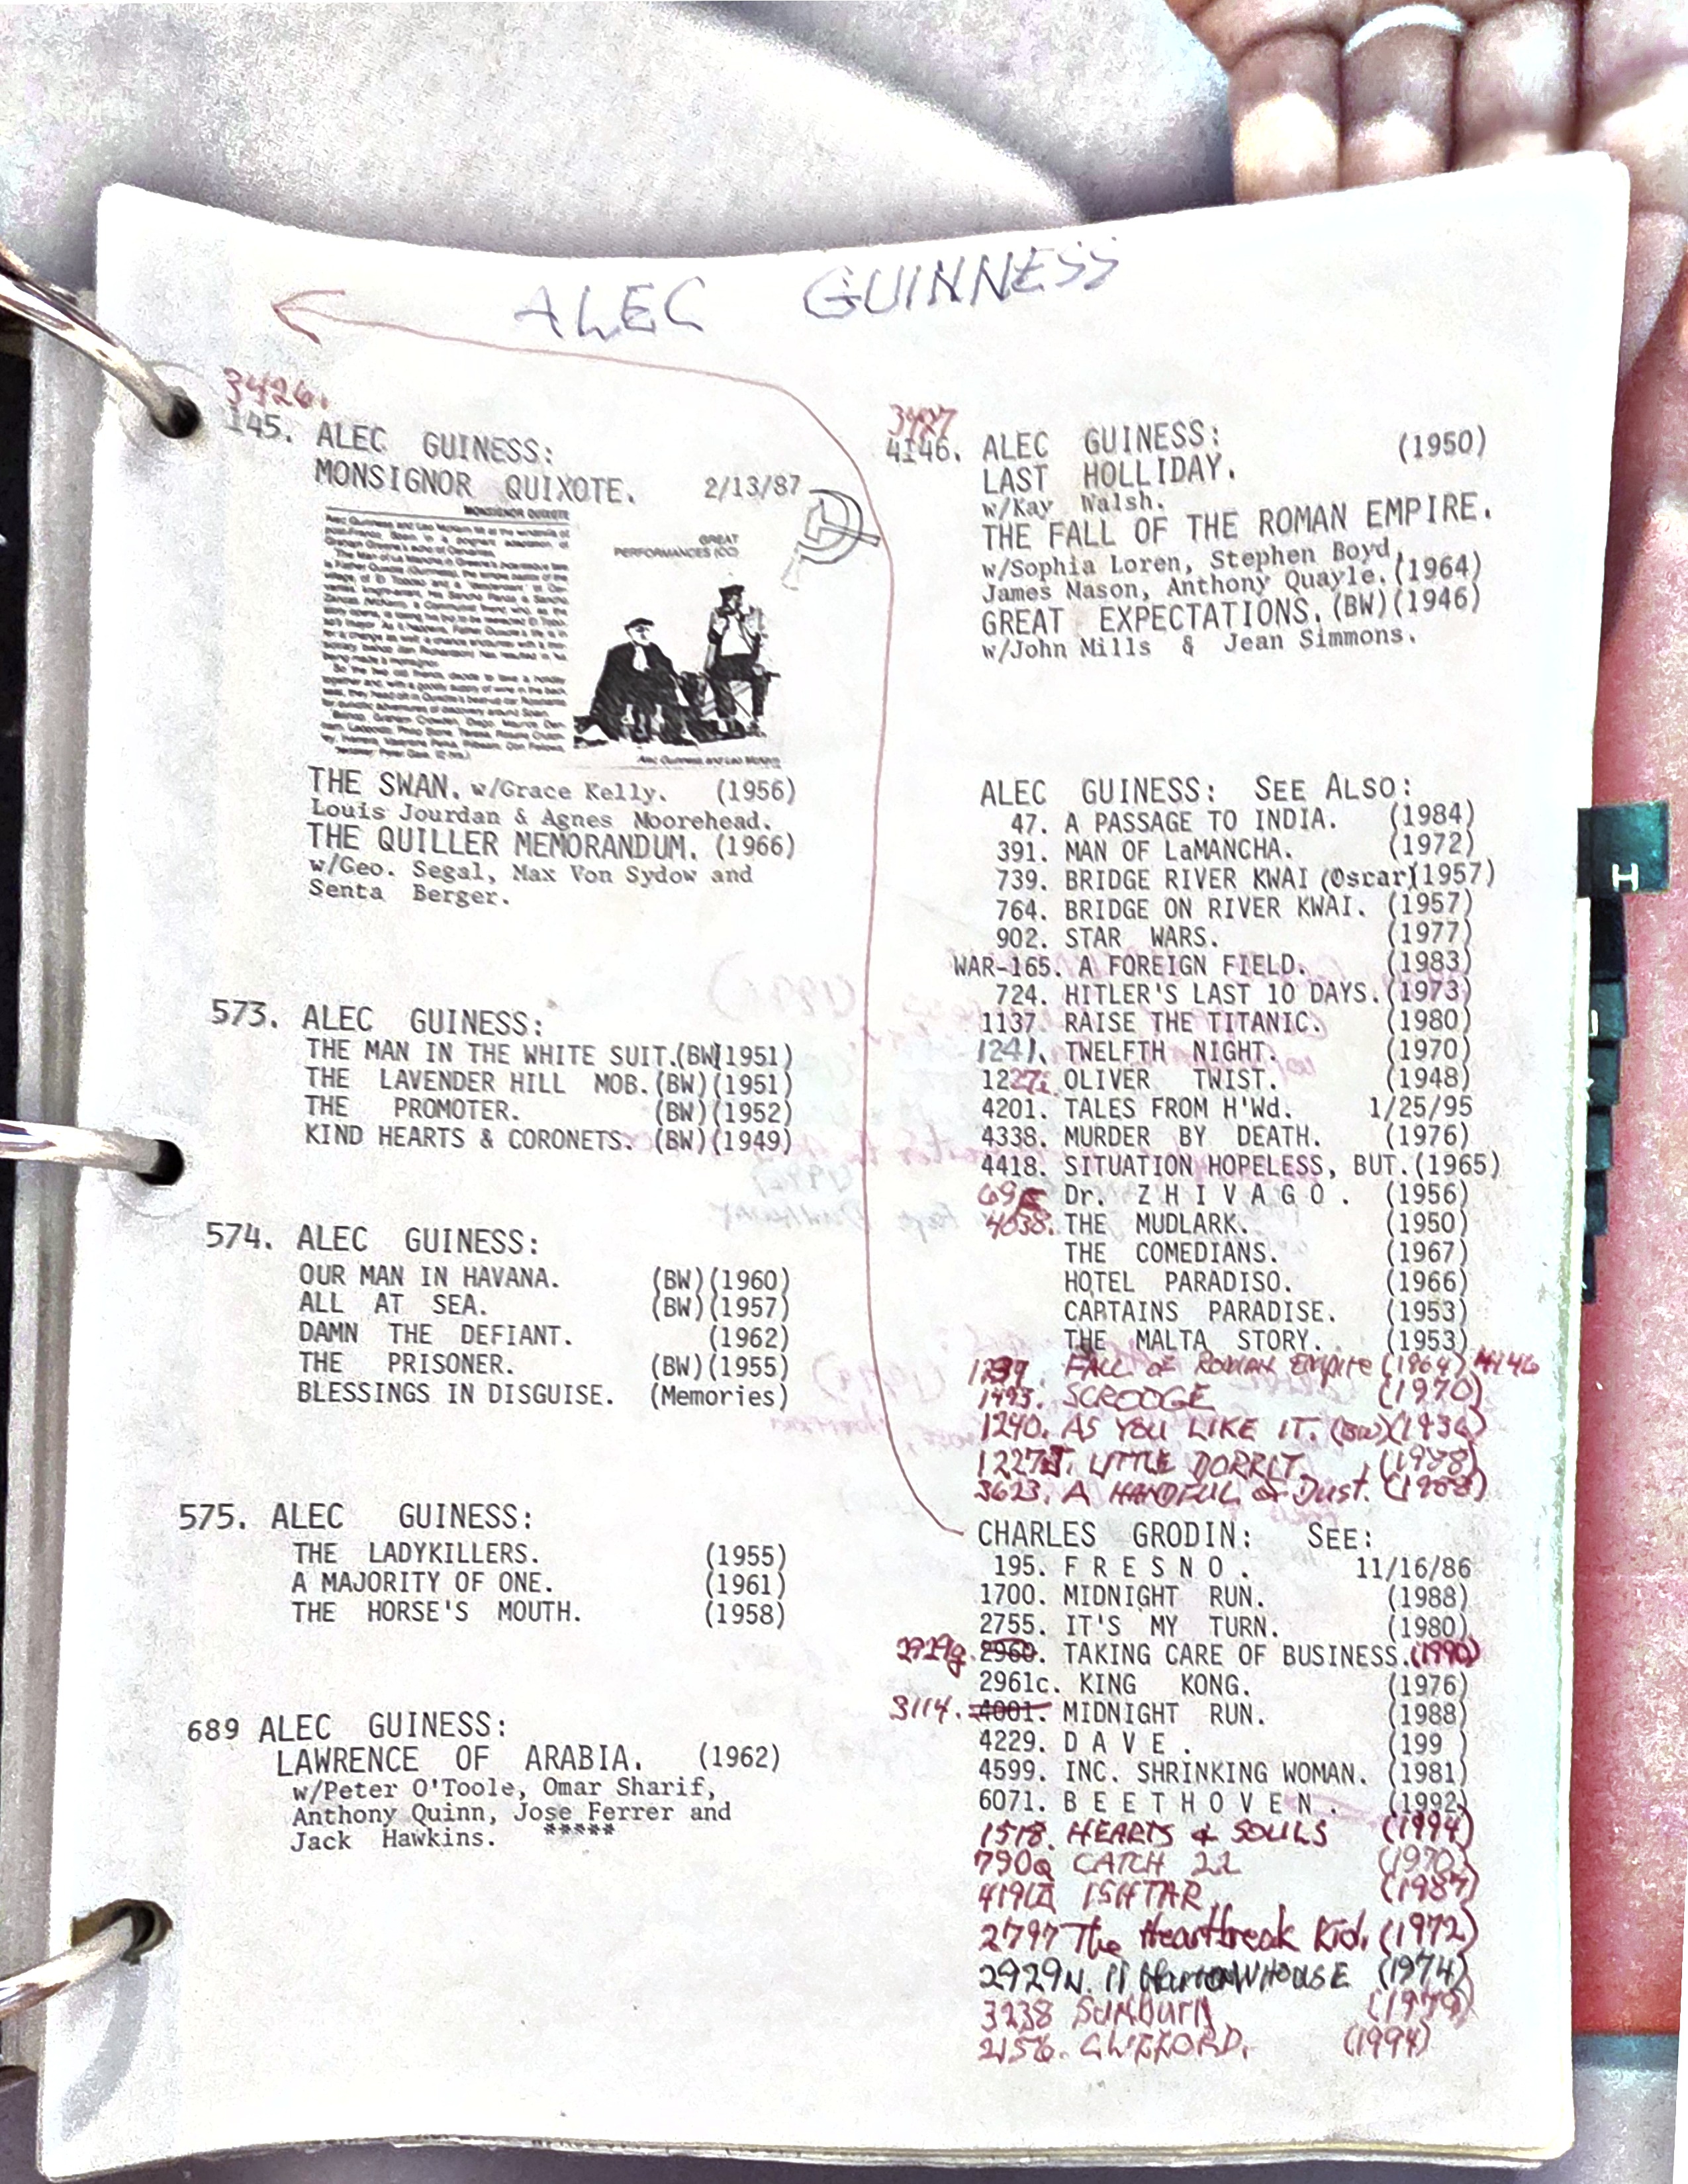 ALEC GUINNESS
3426.
145. ALEC GUINESS:
MONSIGNOR QUIXOTE. 2/13/87
MONSIGNOR QUIXOTE
GREAT
PERFORMANCES (CC)
Alec Guinness and Leo McKern
THE SWAN. w/Grace Kelly. (1956)
Louis Jourdan & Agnes Moorehead.
THE QUILLER MEMORANDUM. (1966)
w/Geo. Segal, Max Von Sydow and
Senta Berger.
573. ALEC GUINESS:
THE MAN IN THE WHITE SUIT.(BW)(1951)
THE LAVENDER HILL MOB.(BW)(1951)
THE PROMOTER. (BW)(1952)
KIND HEARTS & CORONETS. (BW)(1949)
574. ALEC GUINESS:
OUR MAN IN HAVANA. (BW)(1960)
ALL AT SEA. (BW)(1957)
DAMN THE DEFIANT. (1962)
THE PRISONER. (BW)(1955)
BLESSINGS IN DISGUISE. (Memories)
575. ALEC GUINESS:
THE LADYKILLERS. (1955)
A MAJORITY OF ONE. (1961)
THE HORSE'S MOUTH. (1958)
689 ALEC GUINESS:
LAWRENCE OF ARABIA. (1962)
w/Peter O'Toole, Omar Sharif,
Anthony Quinn, Jose Ferrer and
Jack Hawkins. *****
3487
4146. ALEC GUINESS: (1950)
LAST HOLLIDAY.
w/Kay Walsh.
THE FALL OF THE ROMAN EMPIRE.
w/Sophia Loren, Stephen Boyd,
James Mason, Anthony Quayle.(1964)
GREAT EXPECTATIONS.(BW)(1946)
w/John Mills & Jean Simmons.
ALEC GUINESS: SEE ALSO:
47. A PASSAGE TO INDIA. (1984)
391. MAN OF LaMANCHA. (1972)
739. BRIDGE RIVER KWAI (Oscar)(1957)
764. BRIDGE ON RIVER KWAI. (1957)
902. STAR WARS. (1977)
WAR-165. A FOREIGN FIELD. (1983)
724. HITLER'S LAST 10 DAYS.(1973)
1137. RAISE THE TITANIC. (1980)
1241. TWELFTH NIGHT. (1970)
1227i OLIVER TWIST. (1948)
4201. TALES FROM H'Wd. 1/25/95
4338. MURDER BY DEATH. (1976)
4418. SITUATION HOPELESS, BUT.(1965)
Dr. ZHIVAGO. (1956)
4038. THE MUDLARK. (1950)
THE COMEDIANS. (1967)
HOTEL PARADISO. (1966)
CAPTAINS PARADISE. (1953)
THE MALTA STORY. (1953)
FALL OF ROMAN EMPIRE (1964) 4146
1493. SCROOGE (1970)
1240. AS YOU LIKE IT. (BW)(1936)
LITTLE DORRIT. (1988)
3623. A HANDFUL OF DUST. (1988)
CHARLES GRODIN: SEE:
195. FRESNO. 11/16/86
1700. MIDNIGHT RUN. (1988)
2755. IT'S MY TURN. (1980)
2929g. 2960. TAKING CARE OF BUSINESS.(1990)
2961c. KING KONG. (1976)
3114. 4001. MIDNIGHT RUN. (1988)
4229. DAVE. (199 )
4599. INC. SHRINKING WOMAN. (1981)
6071. BEETHOVEN. (1992)
1518. HEARTS & SOULS (1994)
790a CATCH 22 (1970)
ISHTAR (1987)
2797 The Heartbreak Kid. (1972)
2929N. 11 HarrowHOUSE (1974)
3238 SUNBURN (1979)
2156. CLIFFORD. (1994)
H